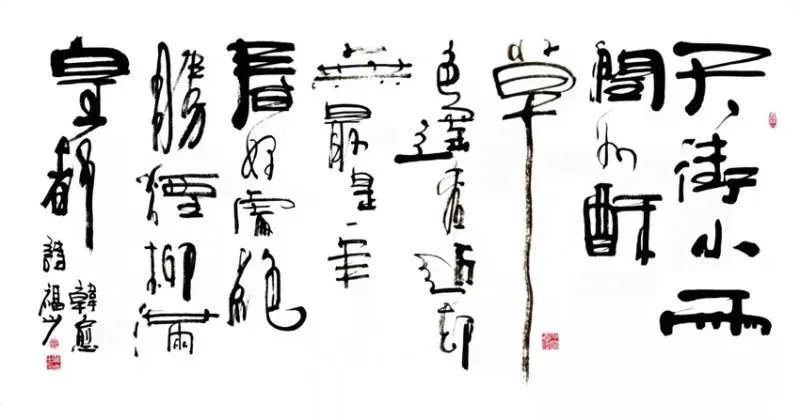 天街小雨
潤如酥
草
色遥看近却
無最是一年
春好處絕
勝煙柳滿
皇都
韓愈
詩福